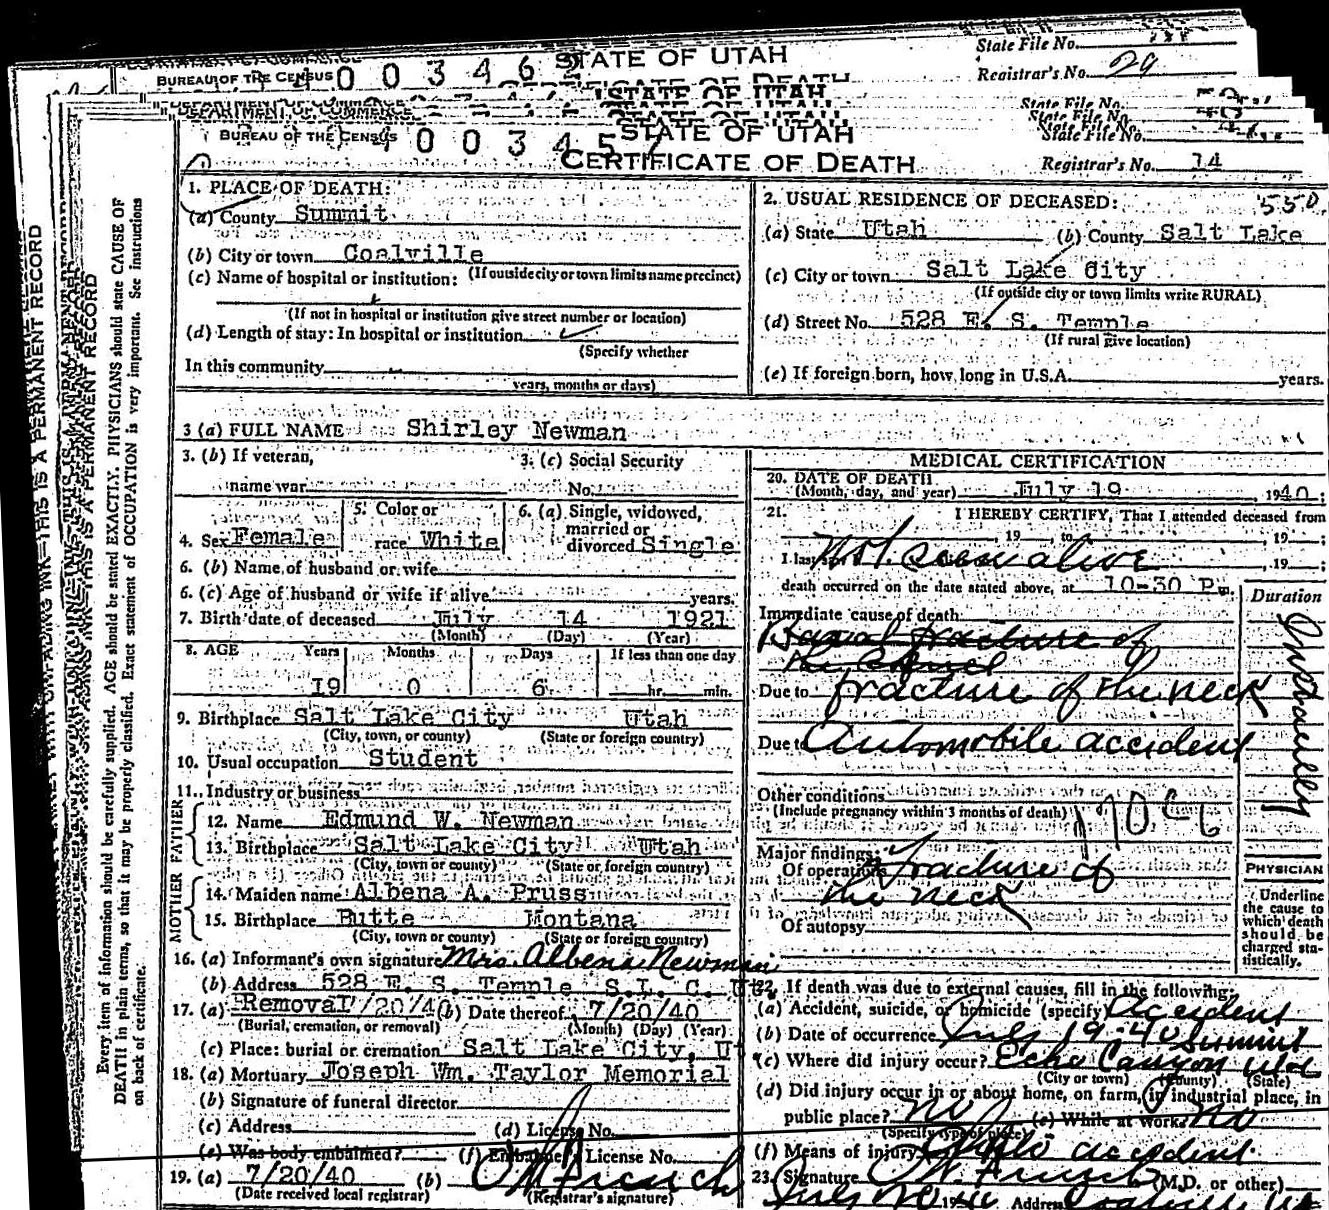 STATE OF UTAH
State File No.
BUREAU OF THE CENSUS
CERTIFICATE OF DEATH
Registrar's No. 29
STATE OF UTAH
State File No.
State File No.
BUREAU OF THE CENSUS
STATE OF UTAH
CERTIFICATE OF DEATH
Registrar's No. 14
THIS IS A PERMANENT RECORD
Every item of information should be carefully supplied. AGE should be stated EXACTLY. PHYSICIANS should state CAUSE OF
DEATH in plain terms, so that it may be properly classified. Exact statement of OCCUPATION is very important. See instructions
on back of certificate.
1. PLACE OF DEATH:
(a) County Summit
(b) City or town Coalville
(If outside city or town limits name precinct)
(c) Name of hospital or institution:
(If not in hospital or institution give street number or location)
(d) Length of stay: In hospital or institution
(Specify whether
In this community
years, months or days)
2. USUAL RESIDENCE OF DECEASED:
550
(a) State Utah (b) County Salt Lake
(c) City or town Salt Lake City
(If outside city or town limits write RURAL)
(d) Street No. 528 E. S. Temple
(If rural give location)
(e) If foreign born, how long in U.S.A. years.
3 (a) FULL NAME Shirley Newman
3. (b) If veteran,
name war
3. (c) Social Security
No.
4. Sex Female
5. Color or
race White
6. (a) Single, widowed,
married or
divorced Single
6. (b) Name of husband or wife
6. (c) Age of husband or wife if alive years.
7. Birth date of deceased July 14 1921
(Month) (Day) (Year)
8. AGE Years Months Days If less than one day
19 0 6 hr. min.
9. Birthplace Salt Lake City Utah
(City, town, or county) (State or foreign country)
10. Usual occupation Student
11. Industry or business
FATHER
12. Name Edmund W. Newman
13. Birthplace Salt Lake City Utah
(City, town or county) (State or foreign country)
MOTHER
14. Maiden name Albena A. Pruss
15. Birthplace Butte Montana
(City, town or county) (State or foreign country)
16. (a) Informant's own signature Mrs. Albena Newman
(b) Address 528 E. S. Temple S. L. C. Ut
17. (a) Removal 7/20/40 (b) Date thereof 7/20/40
(Burial, cremation, or removal) (Month) (Day) (Year)
(c) Place: burial or cremation Salt Lake City, Ut
18. (a) Mortuary Joseph Wm. Taylor Memorial
(b) Signature of funeral director
(c) Address (d) License No.
(e) Was body embalmed? (f) Embalmer's License No.
19. (a) 7/20/40 (b)
(Date received local registrar) (Registrar's signature)
MEDICAL CERTIFICATION
20. DATE OF DEATH
(Month, day, and year) July 19, 1940;
21. I HEREBY CERTIFY, That I attended deceased from
, 19 , to , 19 ;
I last Not seen alive , 19 ;
death occurred on the date stated above, at 10-30 P m.
Duration
Immediate cause of death
Basal fracture of
the
Due to fracture of the neck
Due to Automobile accident
Instantly
Other conditions
(Include pregnancy within 3 months of death)
170
Major findings:
Of operations Fracture of
the neck
Of autopsy
PHYSICIAN
Underline
the cause to
which death
should be
charged sta-
tistically.
22. If death was due to external causes, fill in the following:
(a) Accident, suicide, or homicide (specify) Accident
(b) Date of occurrence July 19-40
(c) Where did injury occur? Echo Canyon Summit Utd
(City or town) (County) (State)
(d) Did injury occur in or about home, on farm, in industrial place, in
public place? No (e) While at work? No
(Specify type of place)
(f) Means of injury Auto accident
23. Signature (M.D. or other)
July 20 1940 Address Coalville Ut